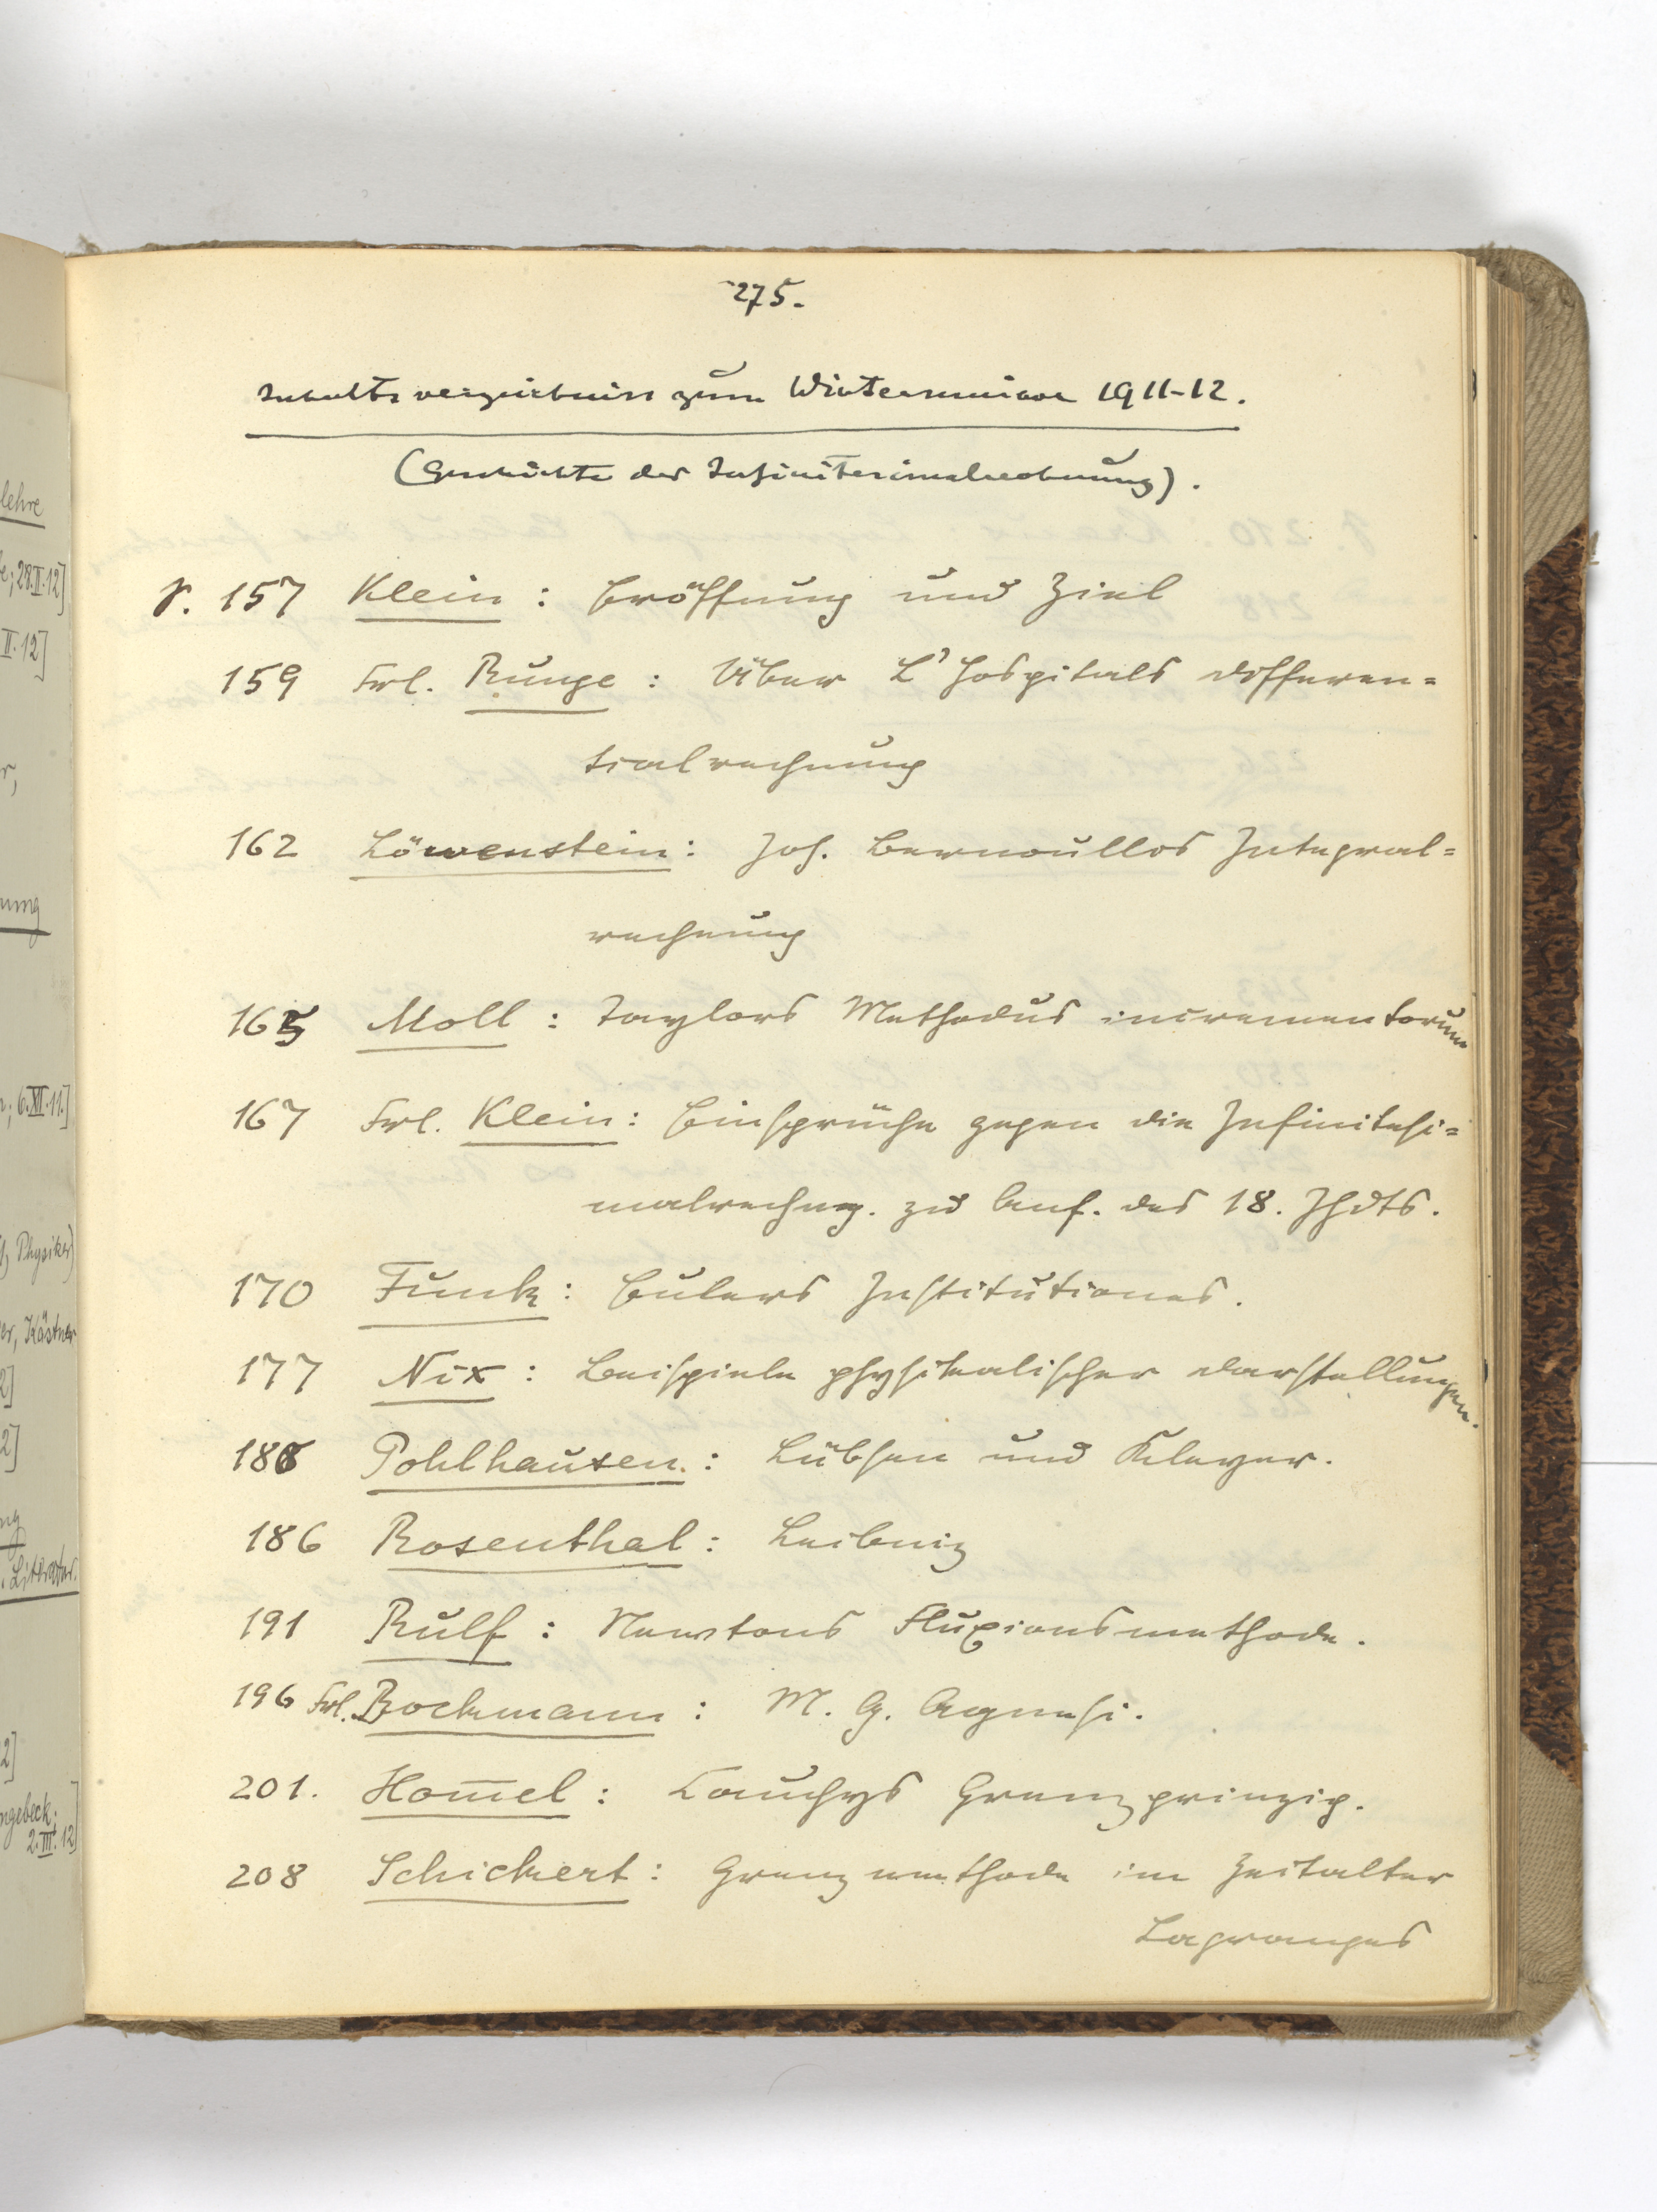 275.
Inhaltsverzeichniss zum Winterseminar 1911-12.
(Geschichte der Infinitesimalrechnung).
S. 157 Klein : Eröffnung und Ziel
159 Frl. Runge : Über L'Hospitals Differen=
tialrechnung
162 Löwenstein : Joh. Bernoullos Integral=
rechnung
165 Moll : Taylors Methodus incrementorum
167 Frl. Klein : Einsprüche gegen die Infinitesi=
malrechng. zu Anf. des 18. Jhdts.
170 Funk : Eulers Institutiones.
177 Nix : Beispiele physikalischer Darstellungen.
18 Pohlhausen. : Lübsen und Kleyer.
186 Rosenthal : Leibniz
191 Rulf : Newtons Fluxionsmethode.
196 Frl. Bockmann : M. G. Agnesi.
201. Hom̅el : Cauchys Grenzprinzip.
208 Schickert : Grenzmethode im Zeitalter
Lagranges
lehre
28.II.12]
II.12]
r,
nung
6.XI.11.]
Physiker)
er, Kästner
2]
2]
ng
. Literatur.
2]
ngebeck;
2.III.12]